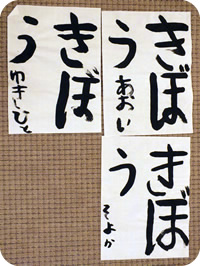 きぼ
う
あおい
きぼ
う
ゆきひと
きぼ
う
そよか